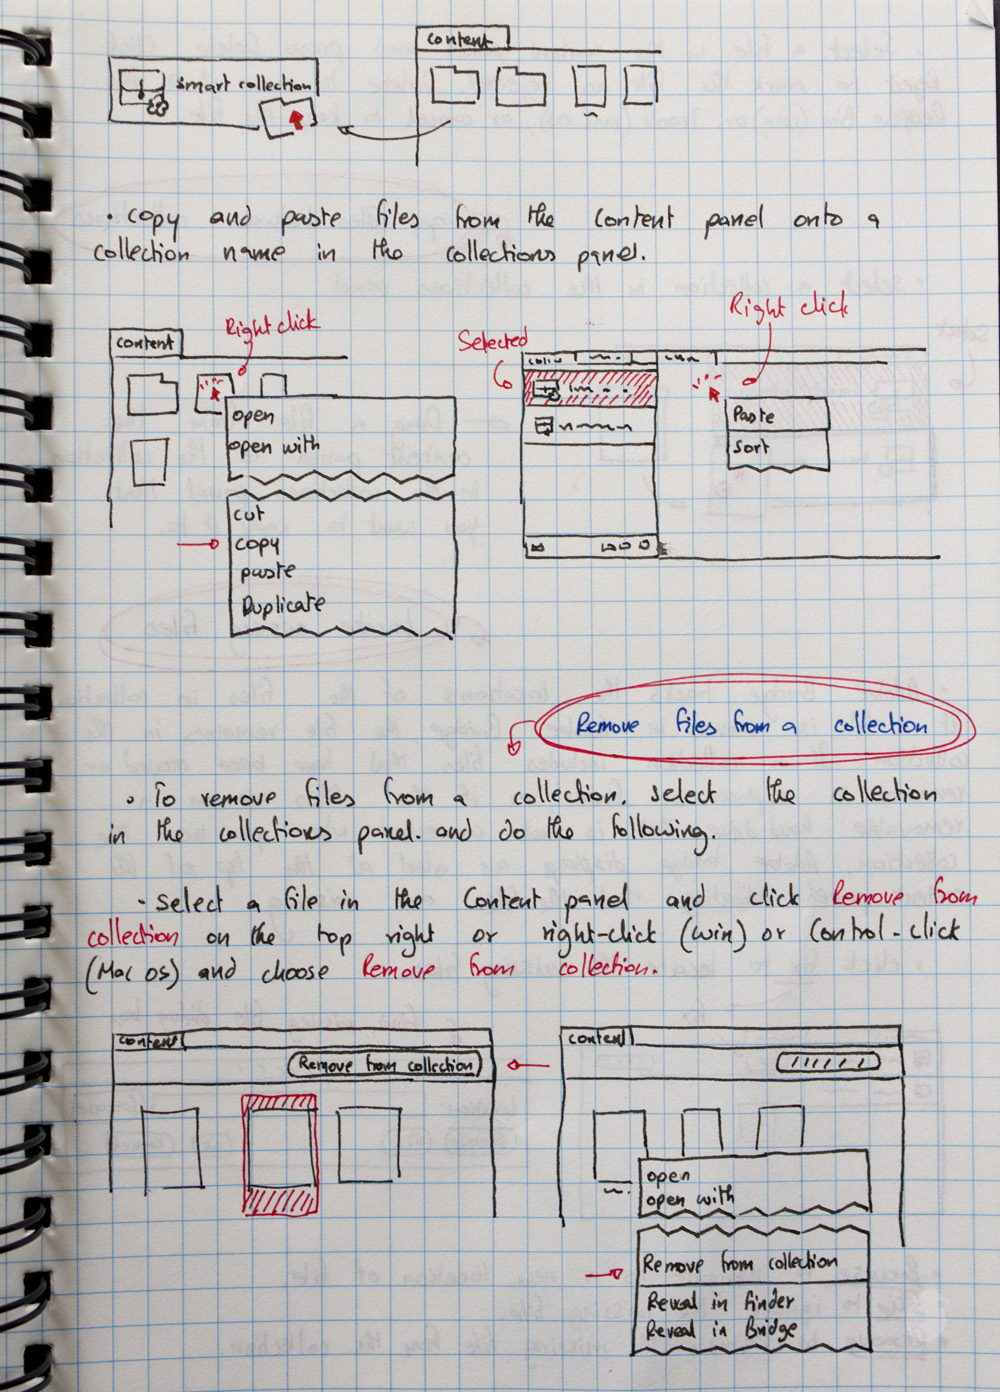 Content
smart collection
• Copy and paste files from the Content panel onto a
collection name in the collections panel.
Right click
Content
open
open with
cut
copy
paste
Duplicate
Selected
Right click
Paste
Sort
Remove files from a collection
• To remove files from a collection. select the collection
in the collections panel. and do the following.
- Select a file in the Content panel and click Remove from
collection on the top right or right-click (win) or Control-click
(Mac OS) and choose Remove from collection.
Content
Remove from collection
Content
open
open with
Remove from collection
Reveal in Finder
Reveal in Bridge